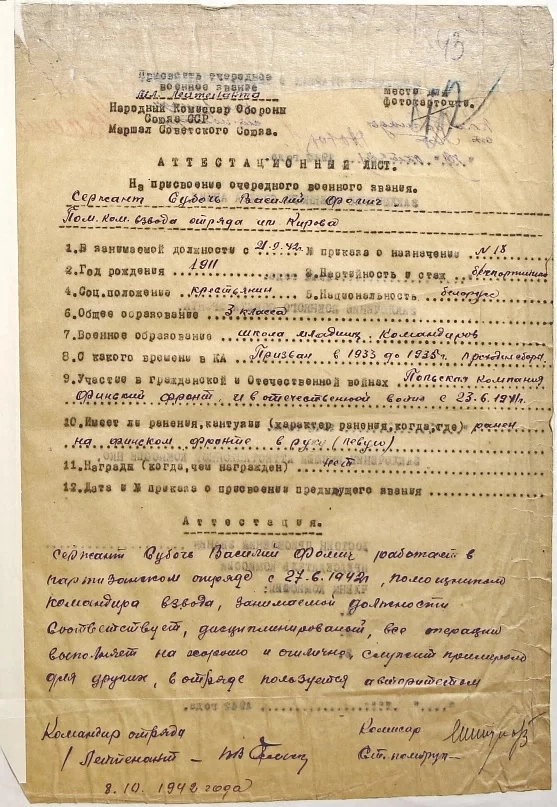 13
Присвоить очередное
военное звание
мл. Лейтенанта
Народный Комиссар Обороны
Союза ССР
Маршал Советского Союза.
место для
фотокарточки.
АТТЕСТАЦИОННЫЙ ЛИСТ.
На присвоение очередного военного звания.
Сержант Субочь Василий Фомич
Пом. ком. взвода отряда им Кирова
1. В занимаемой должности с 21.9.42г № приказа о назначение № 18
2. Год рождения 1911 3. Партийность и стаж беспартийный
4. Соц. положение крестьянин 5. Национальность белорус
6. Общее образование 3 класса
7. Военное образование школа младших Командиров
8. С какого времени в КА Призван в 1933 до 1935г. проходил сборы
9. Участие в Гражданской и Отечественной войнах Польская Компания
Финский фронт, и в отечественной войне с 23.6.1941г.
10. Имеет ли ранения, кантузия (характер ранения, когда, где) ранен
на финском фронте в руку (левую)
11. Награды (когда, чем награжден) нет
12. Дата и № приказа о присвоение предыдущего звания
Аттестация.
Сержант Субочь Василий Фомич работает в
партизанском отряде с 27.6.1942г, помощником
командира взвода, занимаемой должности
соответствует, дисциплинированый, все операции
выполняет на хорошо и отлично, служит примером
для других, в отряде пользуется авторитетом
Командир отряда
/ Лейтенант –
Комисар
Ст. политрук –
8.10.1942 года